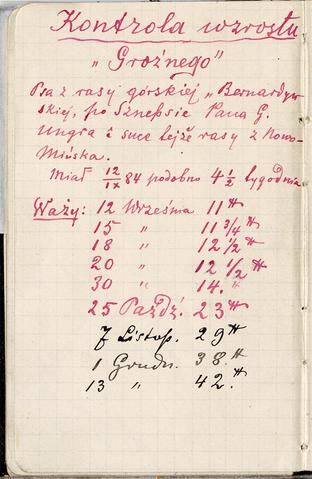 Kontrola wzrostu
„Groźnego"
Psa z rasy górskiej „Bernardyń
skiej, po Sznepsie Pana G.
Ungra i suce tejże rasy z Nowo-
Mińska.
Miał 12/IX 84 podobno 4 1/2 tygodnia
Waży: 12 Września 11 ℔
15 " 11 3/4 ℔
18 " 12 1/2 ℔
20 " 12 1/2 ℔
30 " 14. "
25 Paźdź. 23 ℔
7 Listop. 29 ℔
1 Grudn. 38. ℔
13 " 42. ℔